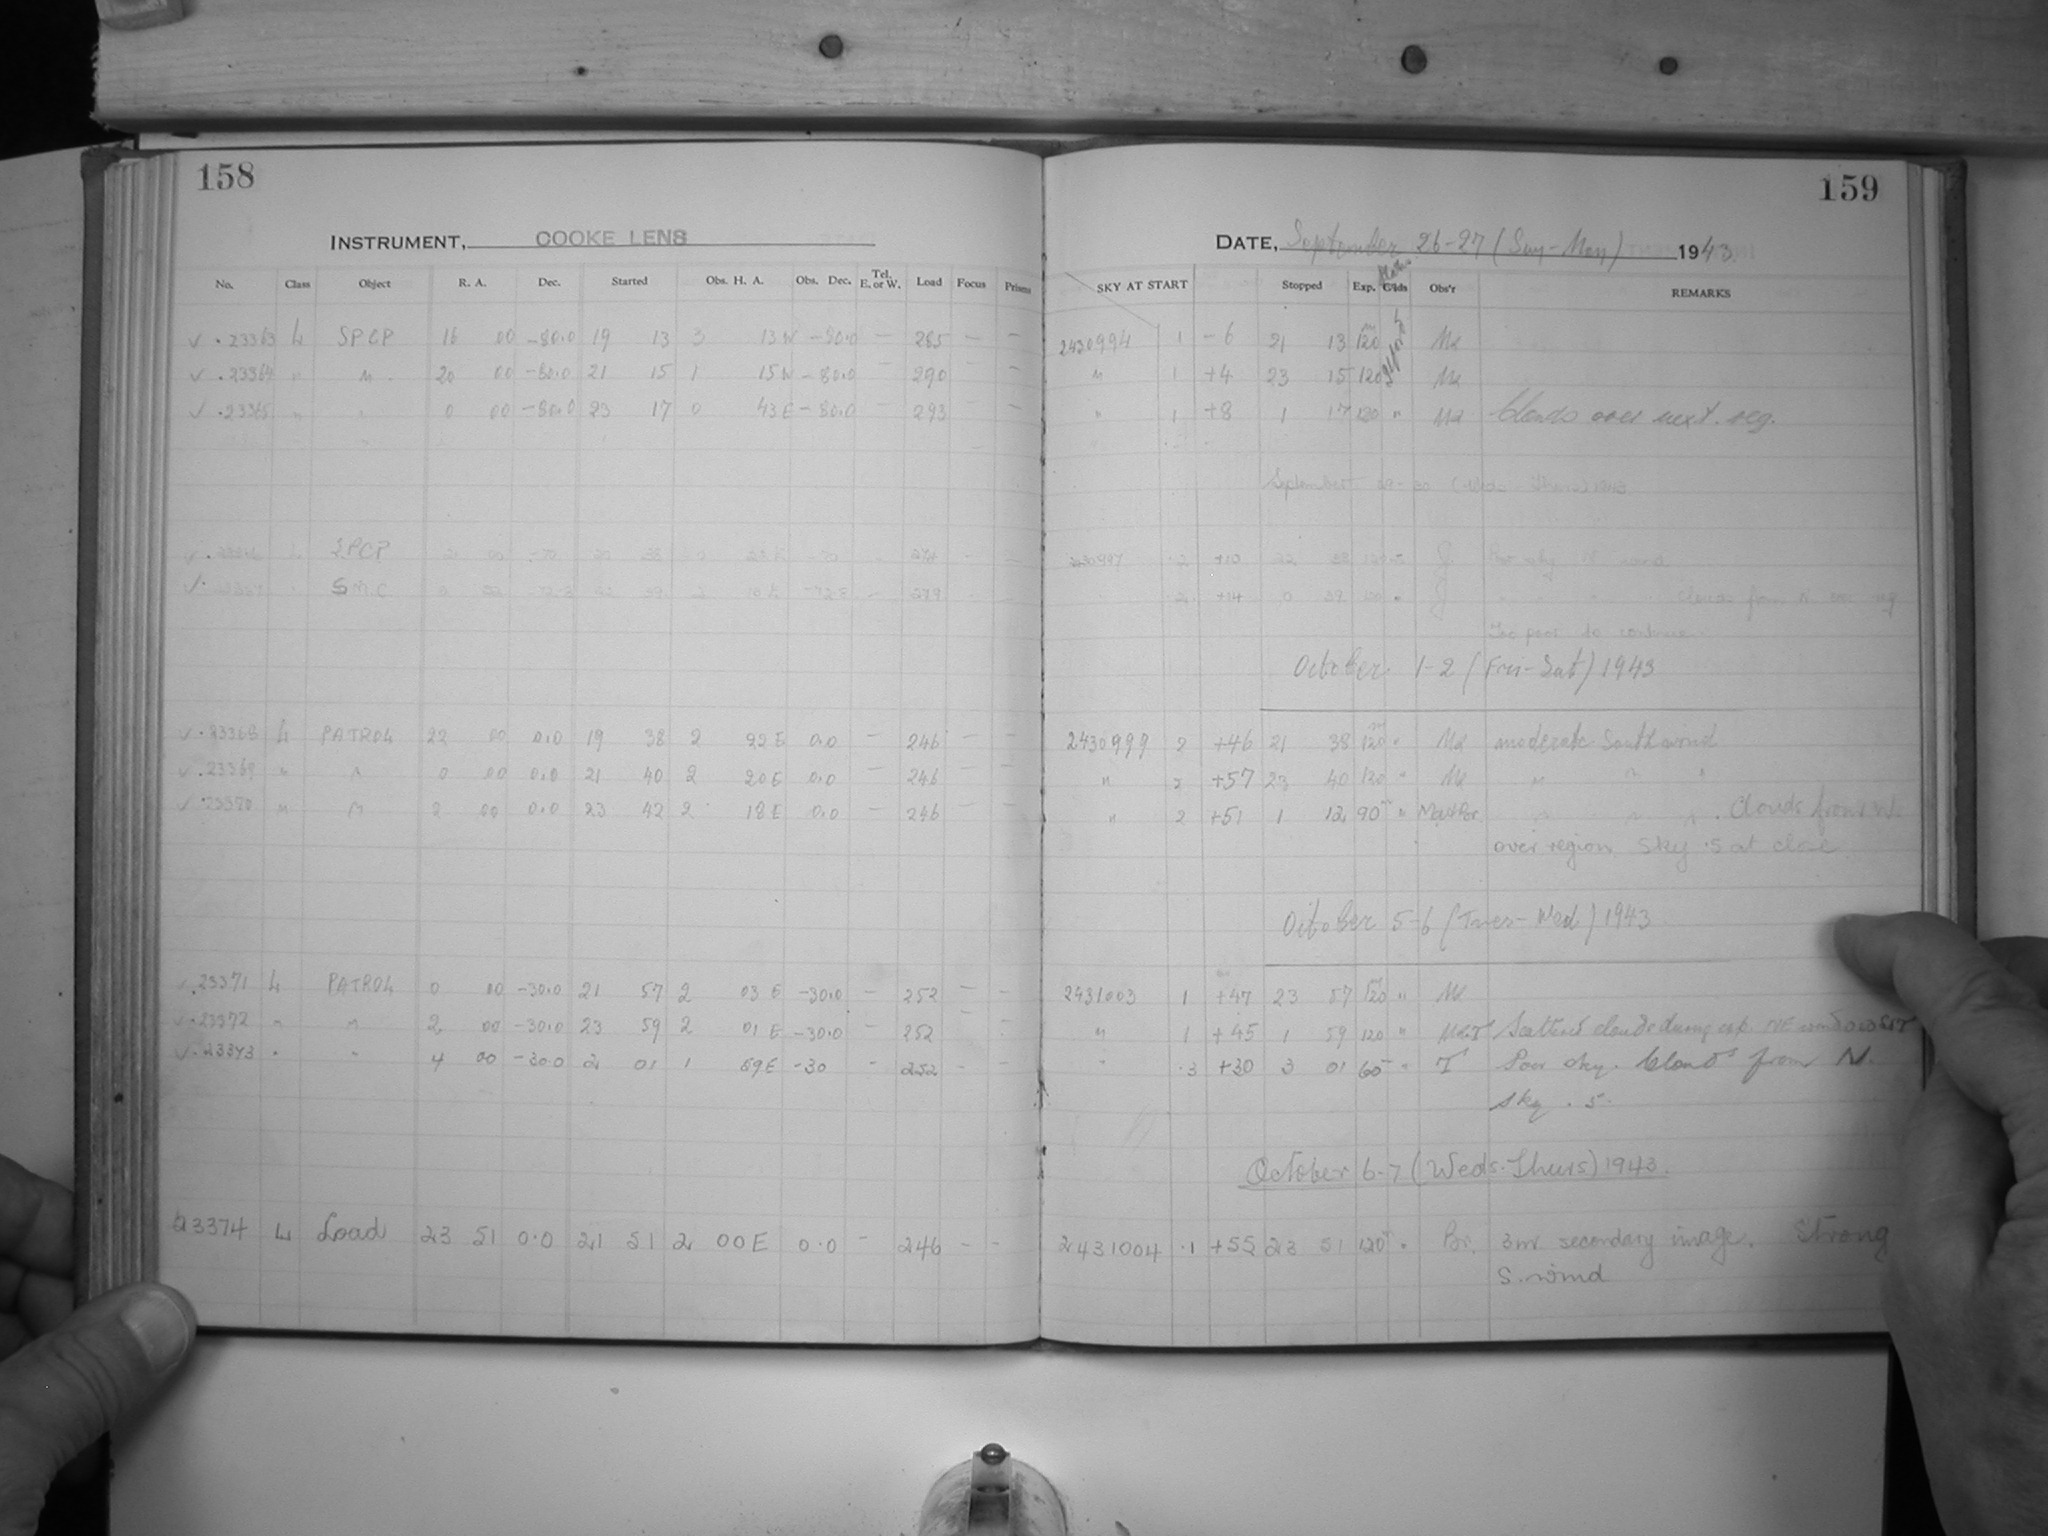 158
INSTRUMENT, COOKE LENS
No. Class Object R. A. Dec. Started Obs. H. A. Obs. Dec. Tel. E. or W. Load Focus Prisms
✓ .23363 L SPCP 16 00 -80.0 19 13 3 13W -80.0 — 285 — —
✓ .23364 " " 20 00 -80.0 21 15 1 15W -80.0 — 290 — —
✓ .23365 " " 0 00 -80.0 23 17 0 43E -80.0 — 293 — —
SPCP
SMC 279 — —
✓ .23368 L PATROL 22 00 0.0 19 38 2 22E 0.0 — 246 — —
✓ .23369 " " 0 00 0.0 21 40 2 20E 0.0 — 246 — —
✓ .23370 " " 2 00 0.0 23 42 2 18E 0.0 — 246 — —
✓ .23371 L PATROL 0 00 -30.0 21 57 2 03 E -30.0 — 252 — —
✓ .23372 " " 2 00 -30.0 23 59 2 01 E -30.0 — 252 — —
✓ .23373 " " 4 00 -30.0 2 01 1 59E -30 — 252 — —
23374 L Load 23 51 0.0 21 51 2 00E 0.0 — 246 — —
159
DATE, September 26-27 (Sun-Mon) 1943
SKY AT START Stopped Exp. Obs'r REMARKS
2430994 1 -6 21 13 120 Mx
" 1 +4 23 15 120 Mx
" 1 +8 1 17 120 " Mx Clouds over next reg.
September 29-30 (Weds-Thurs) 1943
2430997 .2 +10 22 38 120 Poor sky
.2 +14 0 39 120 " Clouds from N over reg
Too poor to continue.
October 1-2 (Fri-Sat) 1943
2430999 2 +46 21 38 120 " Mx moderate South wind
" 2 +57 23 40 120 " Mx " " "
" 2 +51 1 12 90 " " " " . Clouds from W.
over region Sky .5 at close
October 5-6 (Tues-Wed) 1943
2431003 1 +47 23 57 120 " Mx
" 1 +45 1 59 120 " Scattered clouds during exp. NE wind
" .3 +30 3 01 60 " T Poor sky. Clouds from N.
Sky .5.
October 6-7 (Weds-Thurs) 1943.
2431004 .1 +55 23 51 120 " Br. 3m secondary image. Strong
S. wind